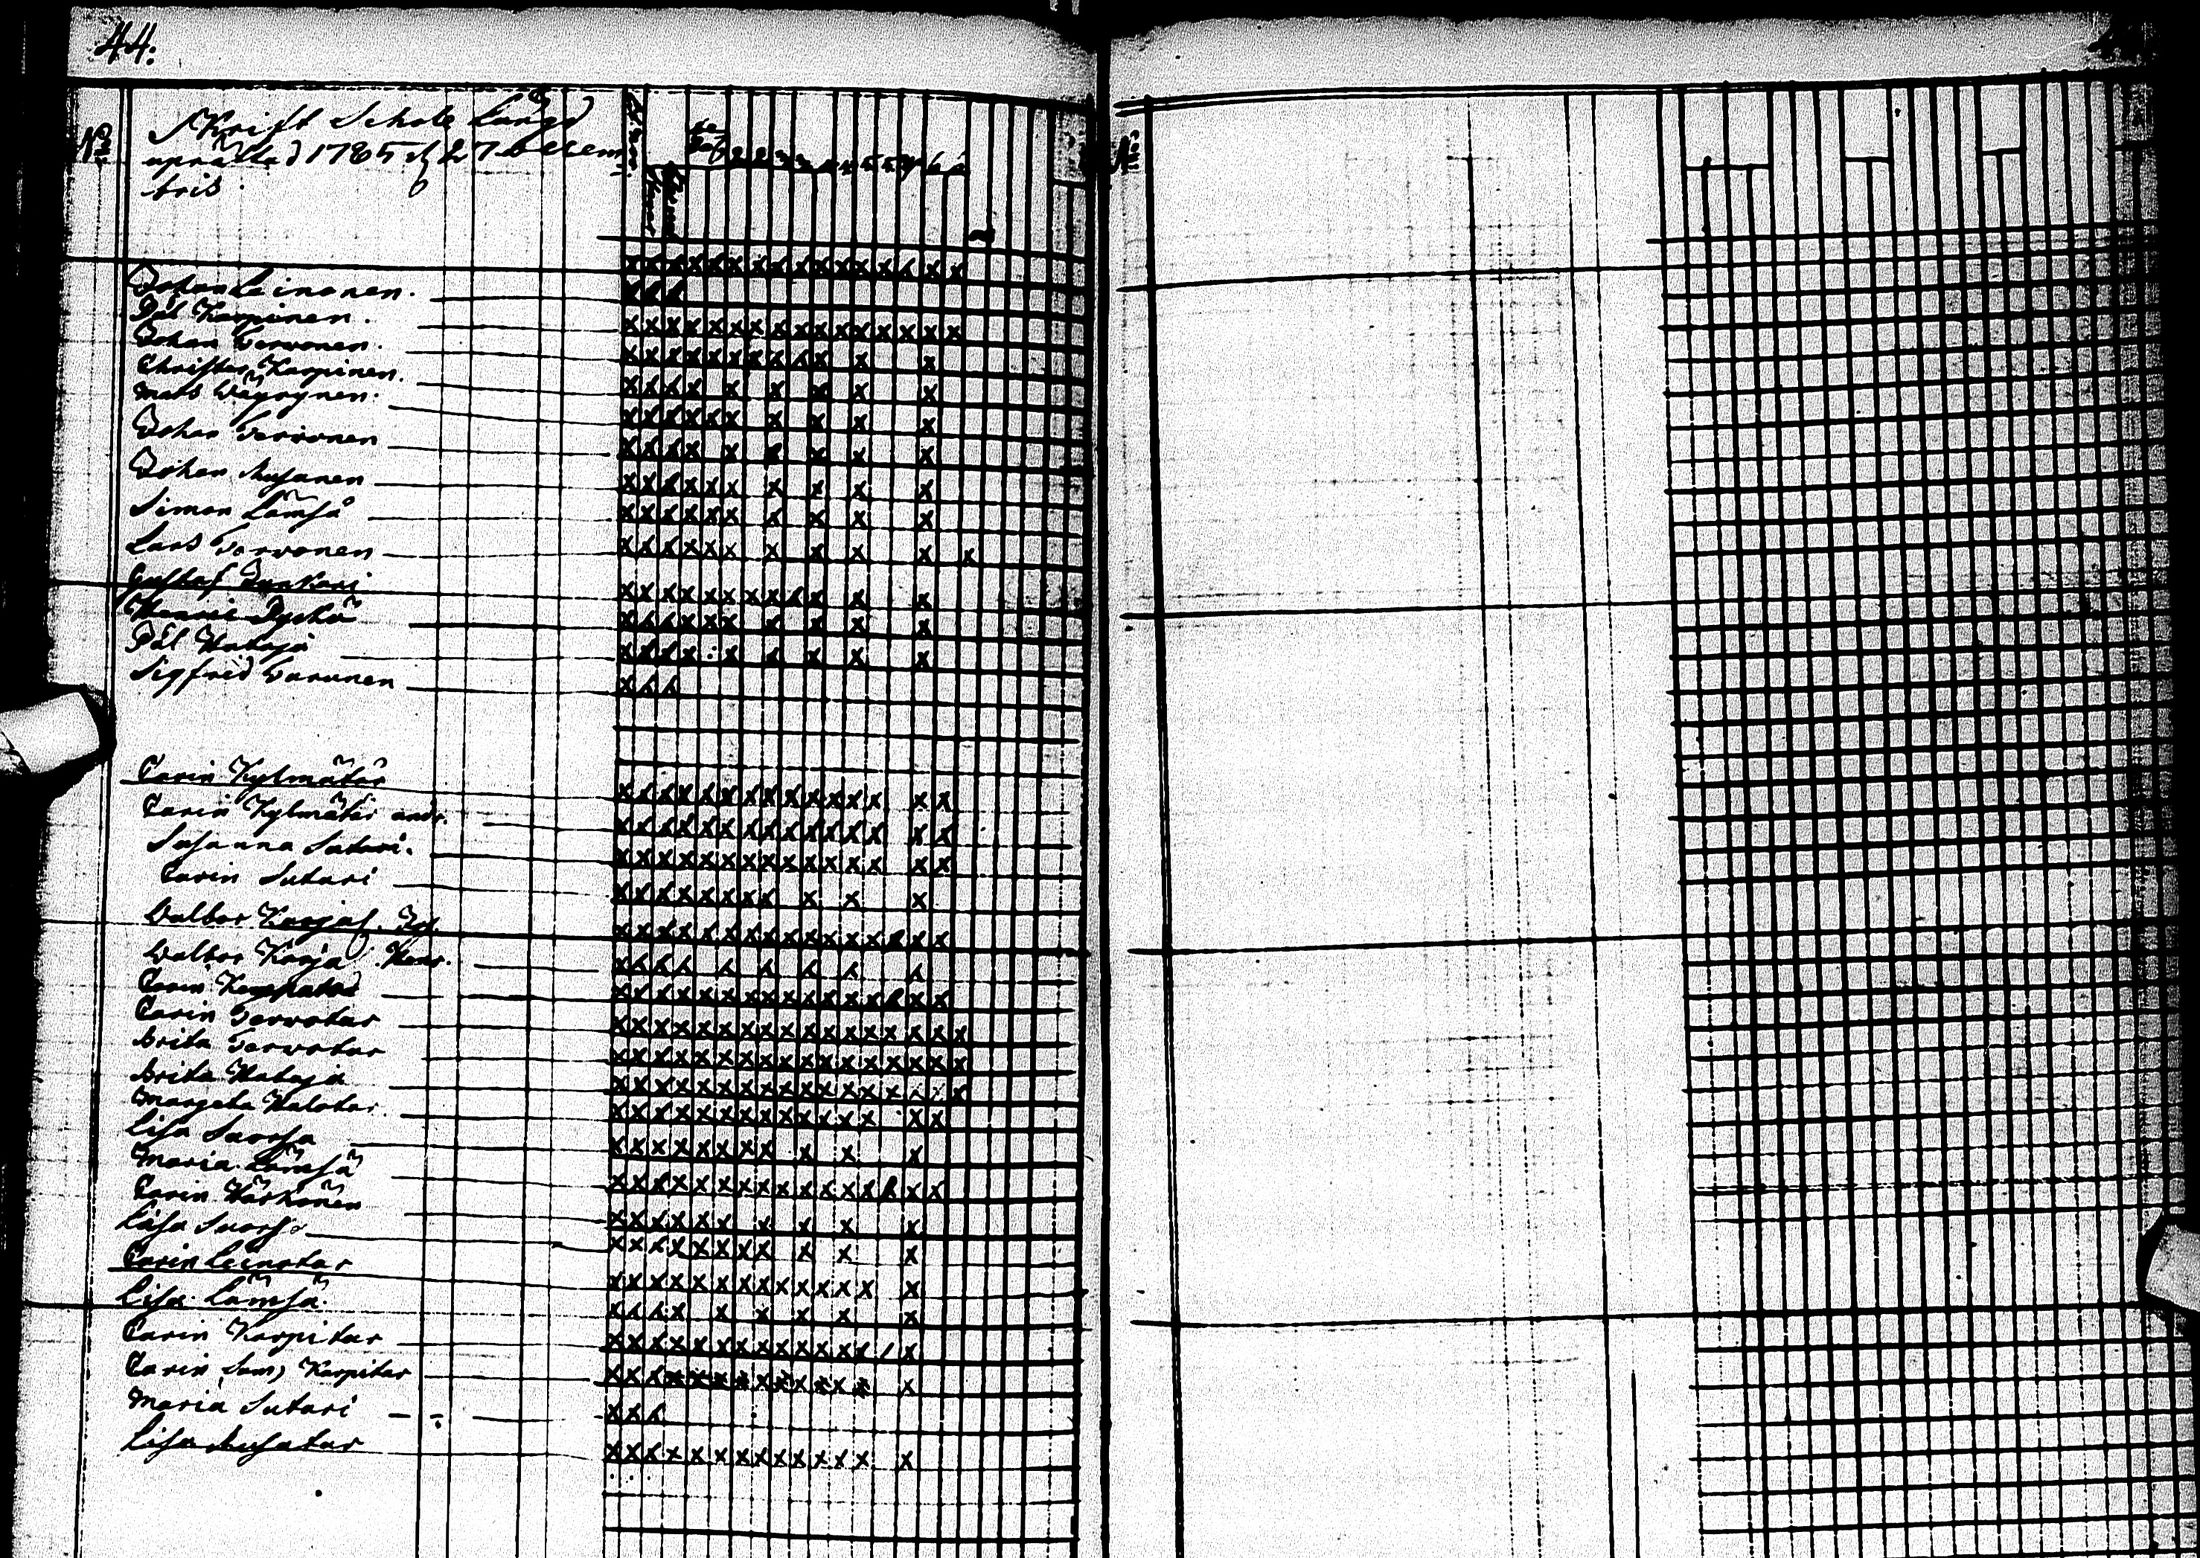 44.
No
Skrift Schole Längd
uprättad 1785 d 27 Decem
bris
2 2 3 3 4 4 5 5 6 6
No
Johan Leinonen.
Pål Karpinen.
Johan Tervonen.
Christer Karpinen.
Mats Väyrynen.
Johan Tervonen
Johan Musanen
Simon Lämsä
Lars Tervonen
Gustaf Junkari
Henric Pyckö
Pål Hataja
Sigfred Turunen
Carin Kylmätär
Carin Kylmätär andr.
Susanna Sutari.
Carin Sutari
Valbor Karja
Valbor Karja Henr.
Carin
Carin Tervotar
Brita Tervotar
Brita Hataja
Margeta Halotar
Lisa Suorsa
Maria Lämsä
Carin Härkönen
Lisa Suorsa
Carin Leinotar
Lisa Lämsä.
Carin Karpitar
Carin Sam) Karpitar
Maria Sutari
Lisa Musatar